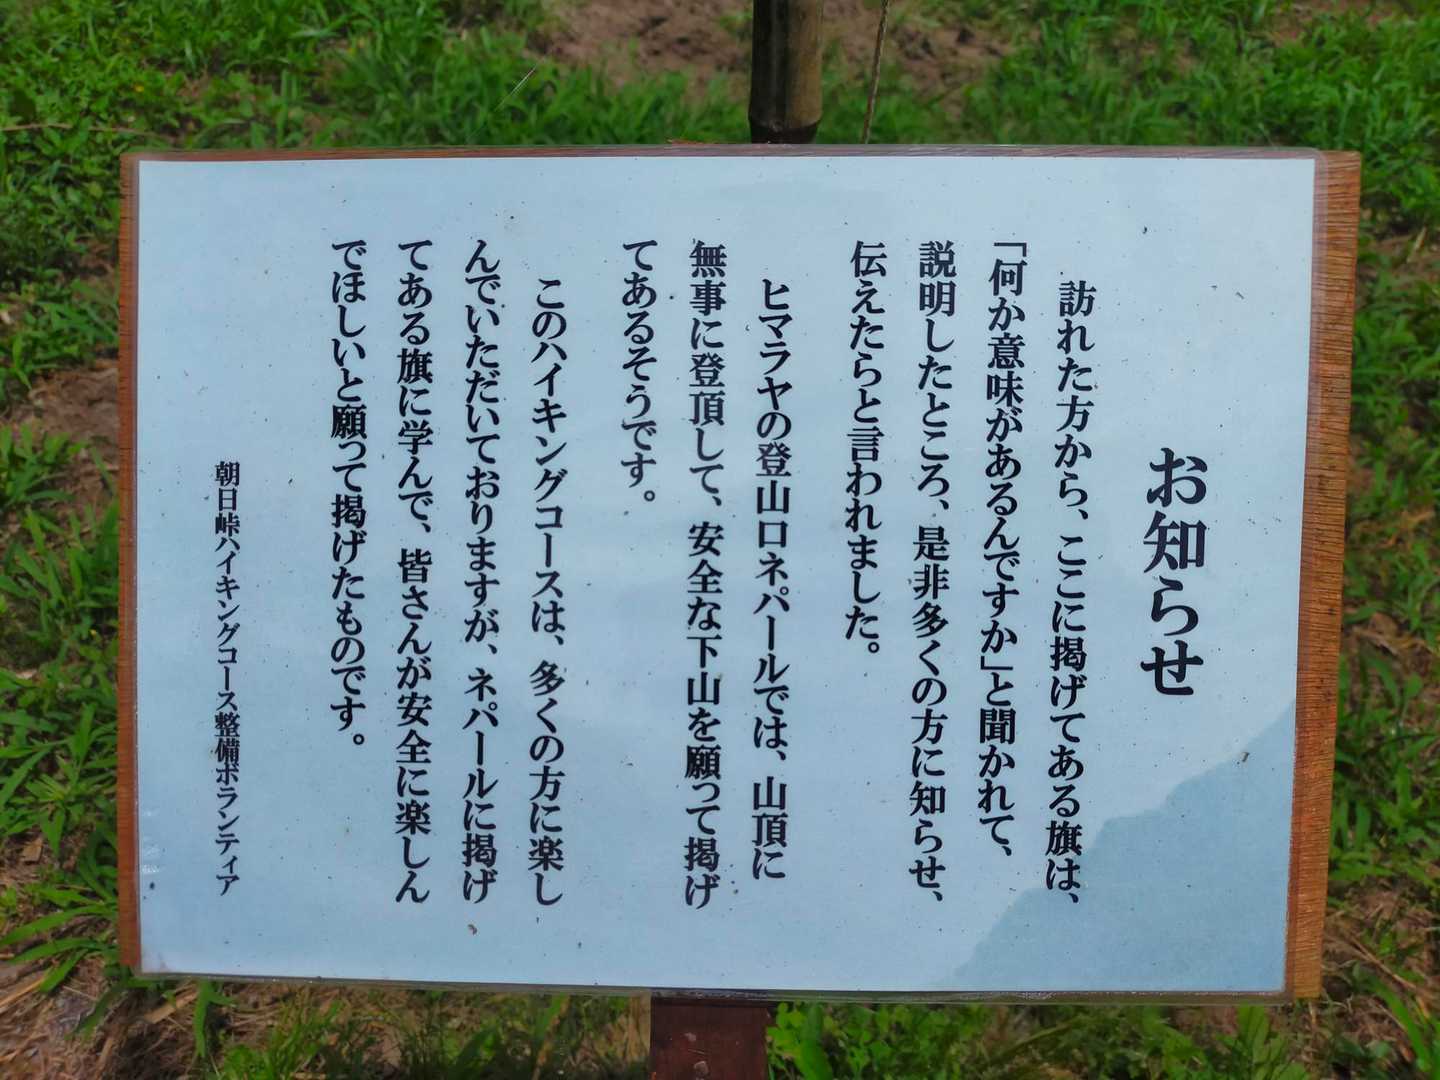 お知らせ
訪れた方から、ここに掲げてある旗は、
「何か意味があるんですか」と聞かれて、
説明したところ、是非多くの方に知らせ、
伝えたらと言われました。
ヒマラヤの登山口ネパールでは、山頂に
無事に登頂して、安全な下山を願って掲げ
てあるそうです。
このハイキングコースは、多くの方に楽し
んでいただいておりますが、ネパールに掲げ
てある旗に学んで、皆さんが安全に楽しん
でほしいと願って掲げたものです。
朝日峠ハイキングコース整備ボランティア